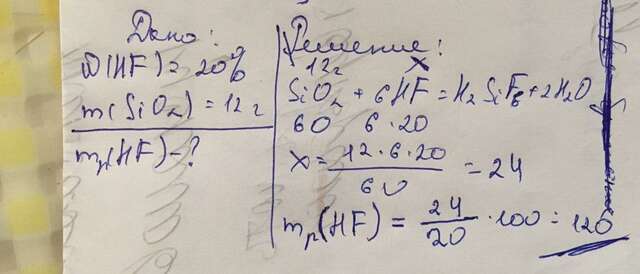 Дано:
ω(HF) = 20%
m(SiO₂) = 12 г
mр(HF) - ?
Решение:
12г x
SiO₂ + 6HF = H₂SiF₆ + 2H₂O
60 6·20
x = 12·6·20 / 60 = 24
mр(HF) = 24/20 · 100 = 120